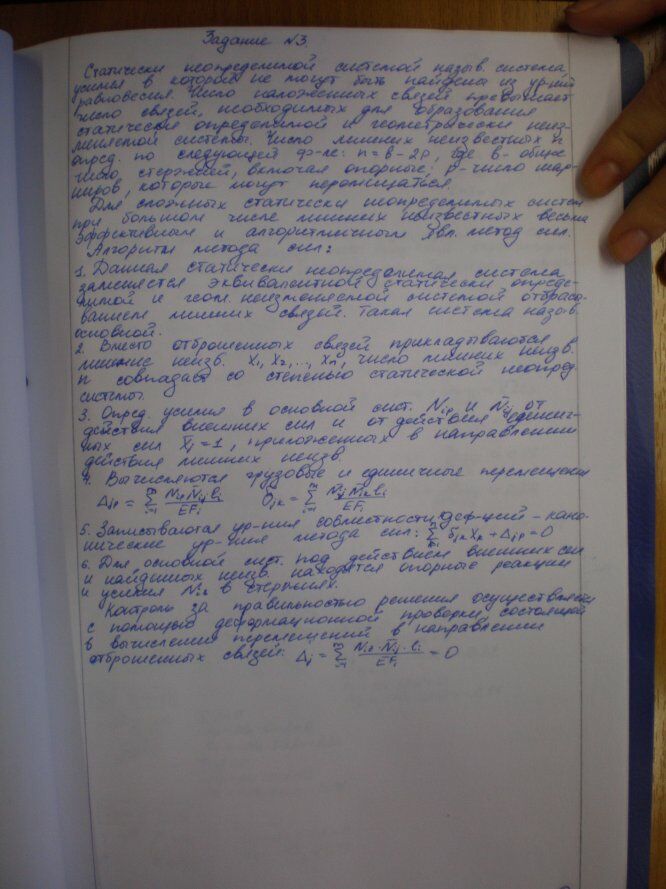 Задание №3
Статически неопределимой системой назыв. система,
усилия в которой не могут быть найдены из ур-ний
равновесия. Число наложенных связей превышает
число связей, необходимых для образования
статически определимой и геометрически неиз-
меняемой системы. Число лишних неизвестных n
опред. по следующей ф-ле: n = в - 2р, где в - общее
число стержней, включая опорные; р - число шар-
ниров, которые могут перемещаться.
Для сложных статически неопределимых систем
при большом числе лишних неизвестных весьма
эффективным и алгоритмичным явл. метод сил.
Алгоритм метода сил:
1. Данная статически неопределимая система
заменяется эквивалентной статически опреде-
лимой и геом. неизменяемой системой отбрасы-
ванием лишних связей. Такая система назыв.
основной.
2. Вместо отброшенных связей прикладываются
лишние неизв. X₁, X₂, ..., Xn, число лишних неизв.
n совпадает со степенью статической неопред.
системы.
3. Опред. усилия в основной сист. Nip и N̄ij от
действия внешних сил и от действия единич-
ных сил X̄j = 1, приложенных в направлении
действия лишних неизв.
4. Вычисляются грузовые и единичные перемещения
Δjp = Σ Nip N̄ij ℓi / EFi δjk = Σ N̄ij N̄ik ℓi / EFi
5. Записываются ур-ния совместности деф-ций - кано-
нические ур-ния метода сил: Σ δjk Xk + Δjp = 0
6. Для основной сист. под действием внешних сил
и найденных неизв. находятся опорные реакции
и усилия в стержнях.
Контроль за правильностью решения осуществляется
с помощью деформационной проверки, состоящей
в вычислении перемещений в направлении
отброшенных связей: Δj = Σ Ni · N̄ij · ℓi / EFi = 0